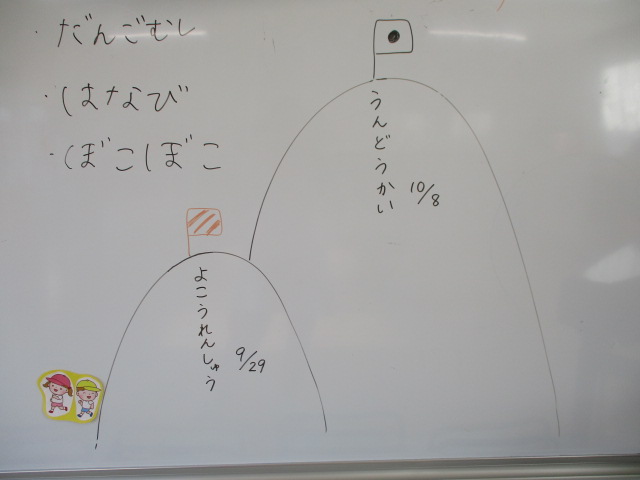 ・だんごむし
・はなび
・ぼこぼこ
うんどうかい
10/8
よこうれんしゅう
9/29